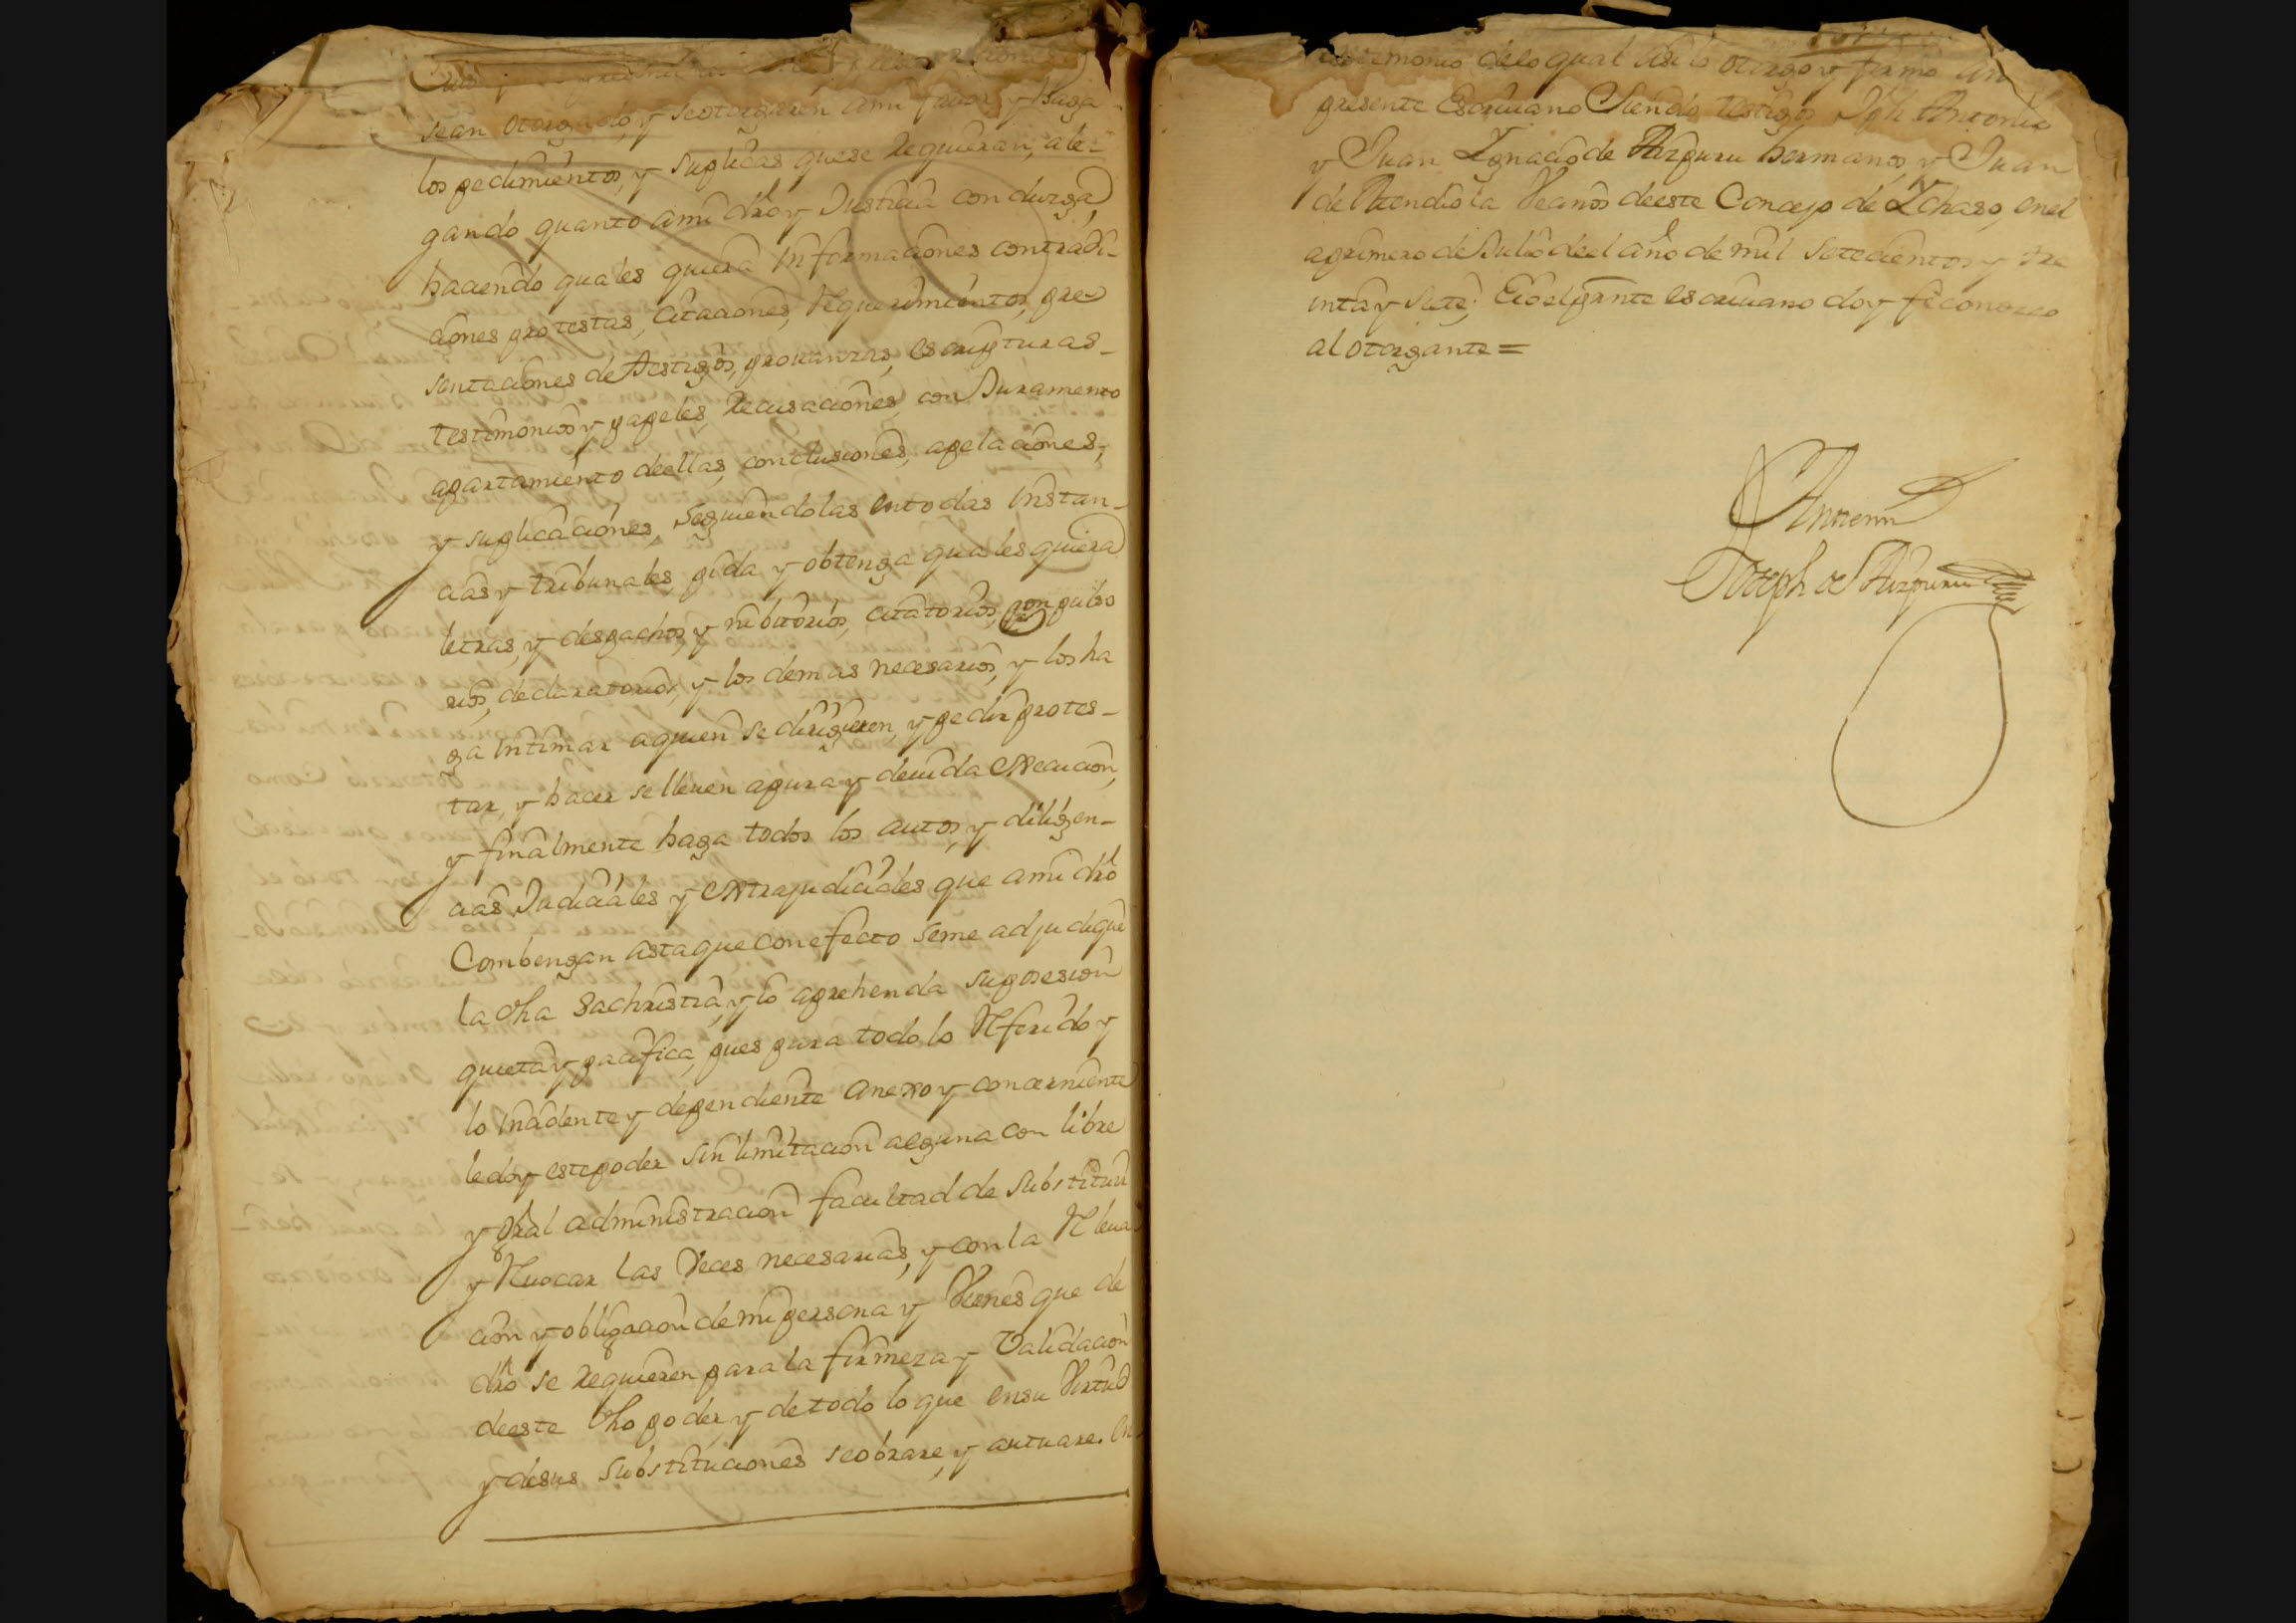 sean otorgado, y seotorgaren ami favor, y haga
los pedimientos, y suplicas quese requieran, ale-
gando quanto ami dro y Justicia conduzga,
haciendo quales quiera Informaciones contradi-
ciones protestas, citaciones, Requerimientos, pre-
sentaciones de testigos, provanzas, escripturas-
testimonios y papeles, recusaciones, con Juramento
apartamiento deellas, conclusiones, apelaciones,
y suplicaciones, seguiendolas entodas Instan-
cias y tribunales, pida y obtenga qualesquiera
letras, y despachos, y nibitorios, citatorios, conpulso
rios, declaratorios, y los demas necesarios, y los ha
ga Intimar aquien se dirigieren, y pedir protes-
tar, y hacer se lleven apura y devida execucion,
y finalmente haga todos los autos, y diligen-
cias Judiciales y extrajudiciales que ami dro
Combengan astaque conefecto seme adjudique
la dha Sachristia, y lo aprehenda suposesion
quieta y pacifica, pues para todo lo Referido y
lo Incidente y dependiente anexo y concerniente
ledoy estepoder sin limitacion alguna con libre
y gral administracion facultad de substituir
y Revocar las Veces necesarias, y con la Releva
cion y obligacion de mi persona y Vienes que de
dro se requieren para la firmeza y Validacion
deeste dho poder, y detodo loque ensu Virtud
y desus substituciones seobrare, y actuare. En
testimonio delo qual Asilo otorgo y firmo
presente Escrivano Siendo testigos Jph Antonio
y Juan Ignacio de Aizpuru hermanos, y Juan
de Mendiola Vecinos deeste Concejo de Ichaso, enel
aprimero de Julio deel año de mil Setecientos y tre
inta y siete, Eio elprnte escrivano doy fe conozco
al otorgante =
Antemi
Joseph de Aizpuru